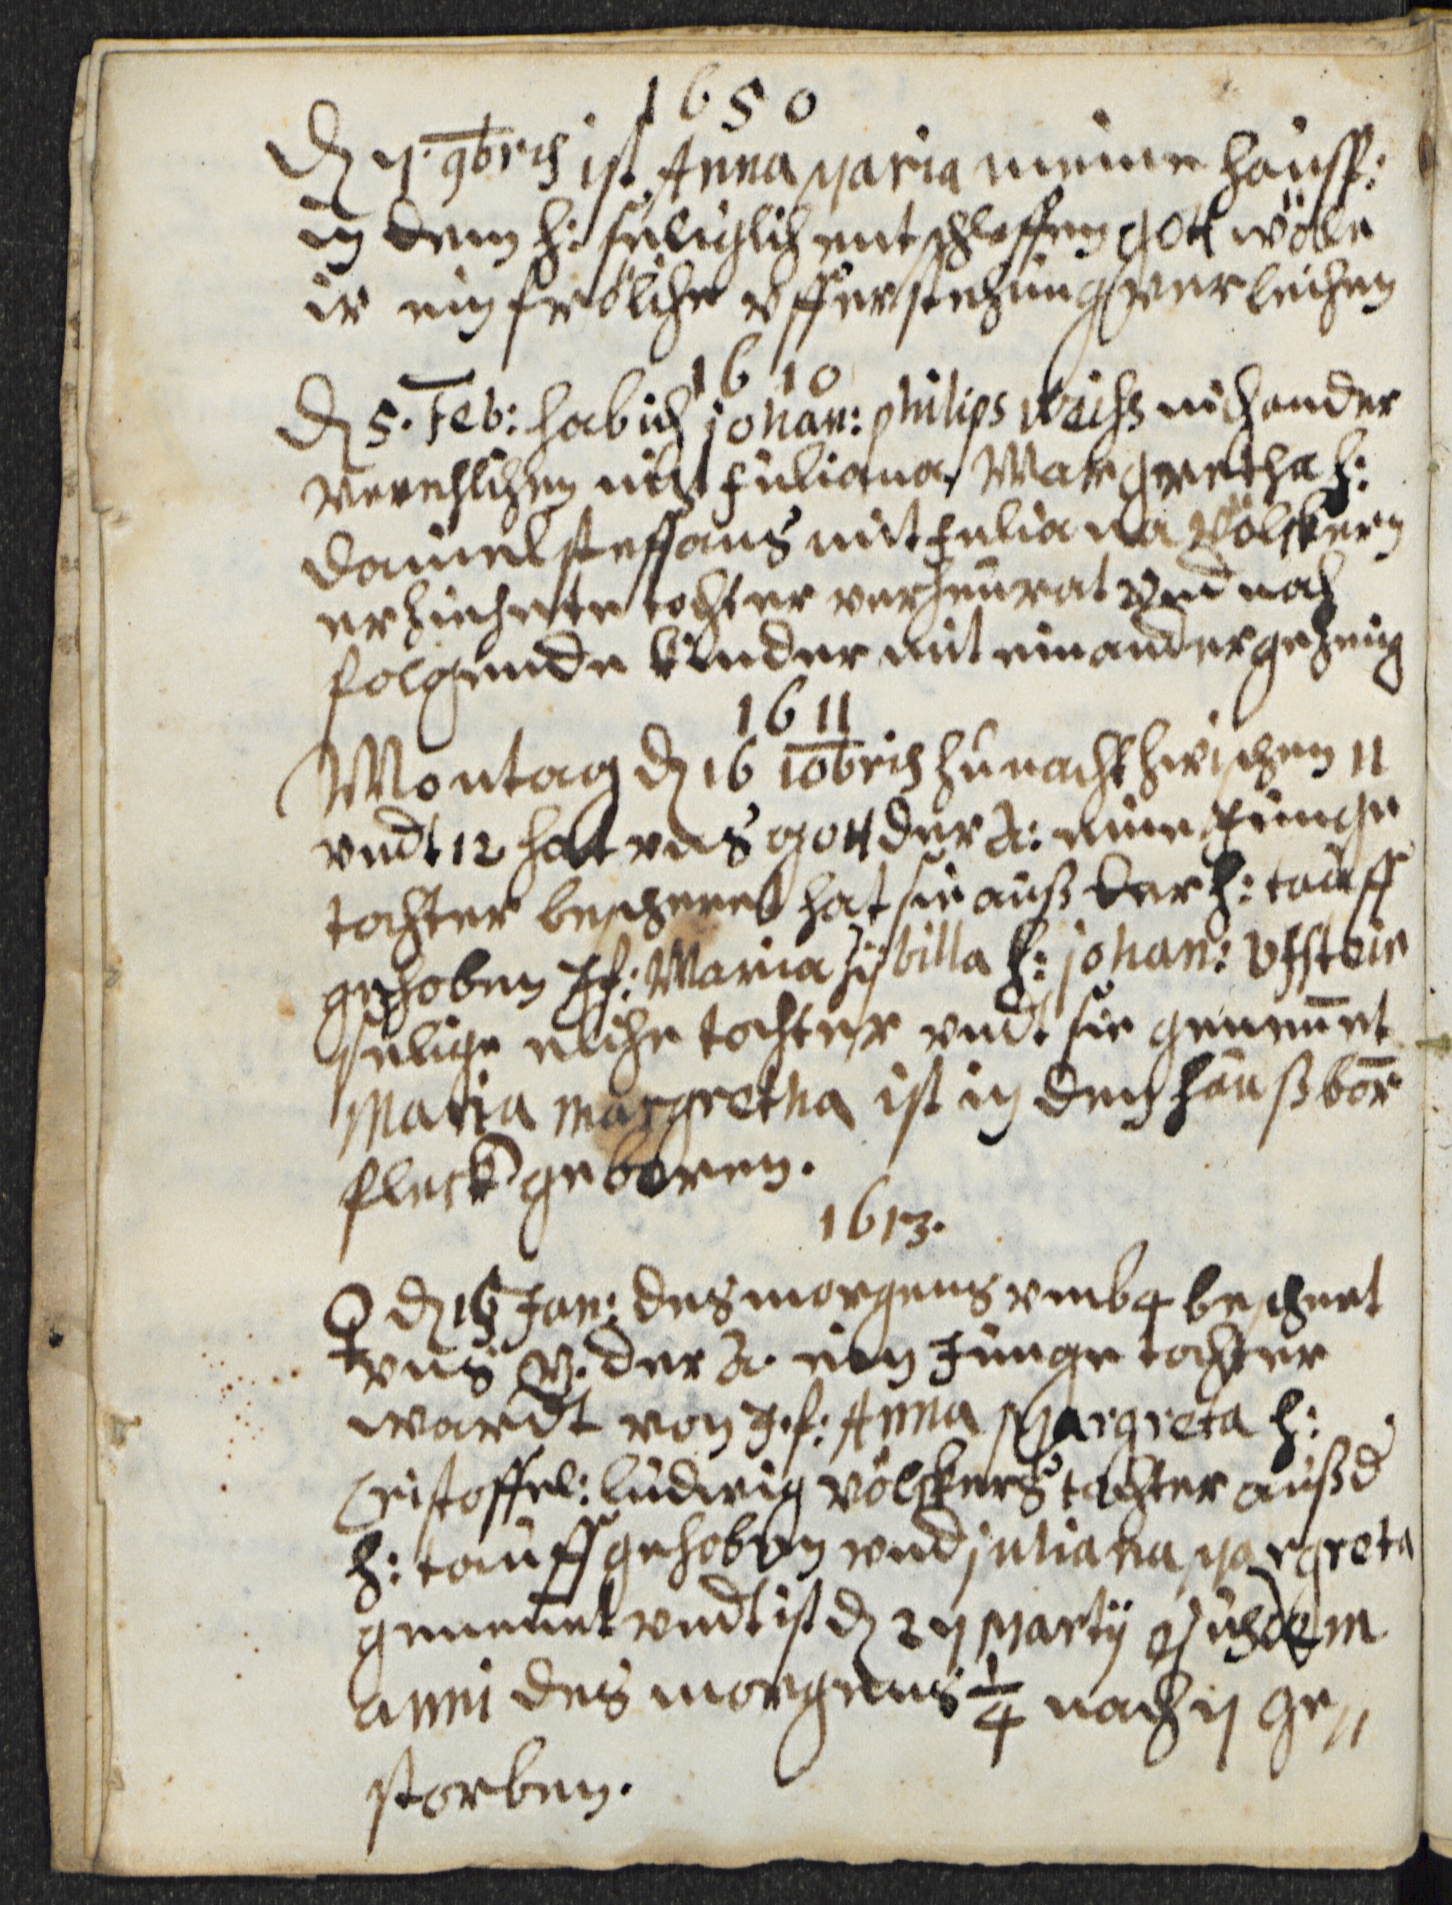 1650
Den 7. 9bris ist Anna Maria meine haußf:
in dem h: seliglich entschlaffen gott wölle
ir ein fröliche vfferstehung verleihen
1610
Den 5. Feb: hab ich johan: philips weiss
verehlichen mit Juliana Margretha h:
Daniel steffans mit Juliana Völckern
erziehlete tochter verheurat vnd nach
folgende kinder mit einander gezeug
1611
Montag den 16 10bris zu nacht zwischen 11
vndt 12 hatt vns gott der A: eine Junge
tochter bescheret hat sie auß der h: tauff
gehoben Jf: Maria Sÿbilla h: johan: Vffstein
selige eliche tochter vndt sie genennet
Maria Margretha ist in dem hauß bor
fleck geboren.
1613.
♀ den 15 Jan: des morgens vmb 4 beschert
vns g. der A. ein Junge tochter
wardt von J.f: Anna Margreta h:
Cristoffel: ludwig völckers tochter auß d
h: tauff gehoben vnd juliana Margreta
genennet vndt ist den 27 Martÿ Ejusdem
anni des morgens 1/4 nach 7 ge//
storben.